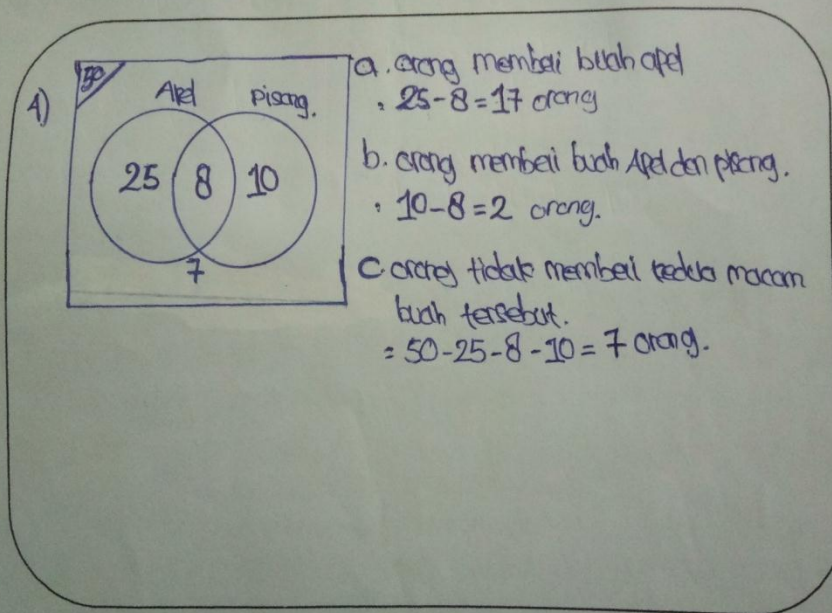 4)
50
Apel Pisang.
25 8 10
7
a. orang membeli buah apel
= 25-8=17 orang
b. orang membeli buah Apel dan pisang.
= 10-8=2 orang.
C orang tidak membeli kedua macam
buah tersebut.
= 50-25-8-10=7 orang.